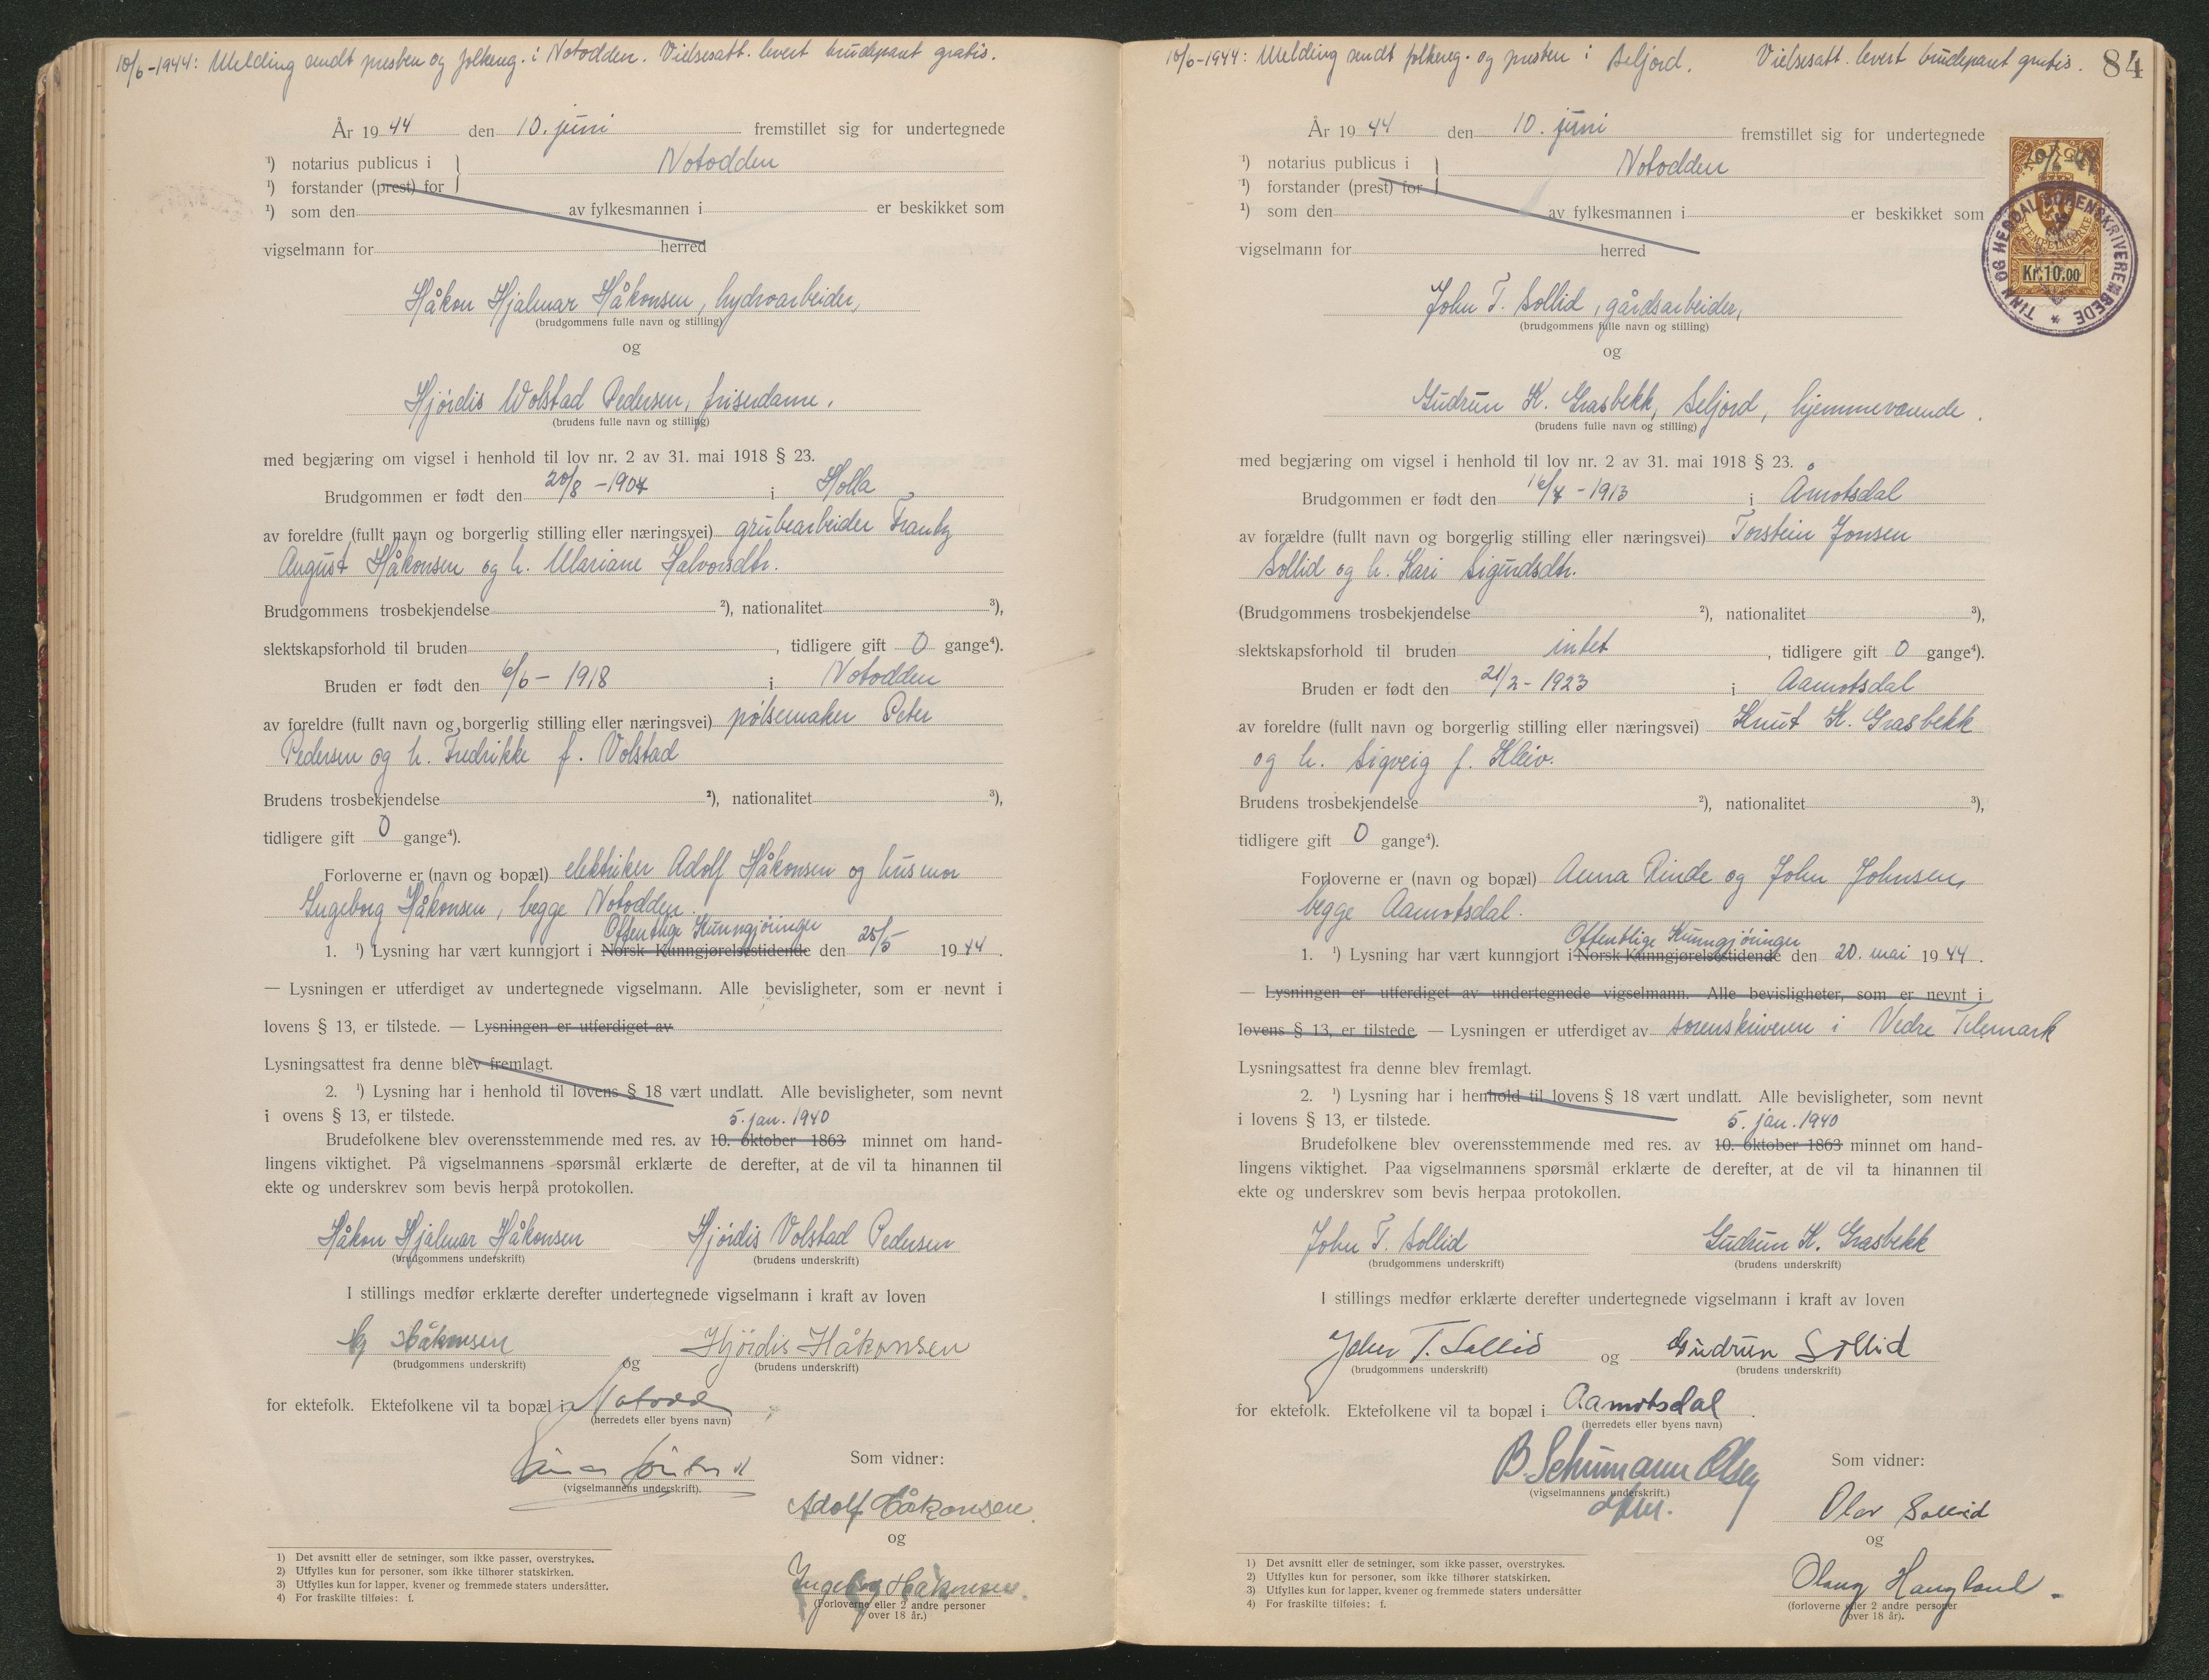 10/6-1944: Melding sendt presten og folkereg. i Notodden. Vielsesatt. levert brudeparet gratis.
År 1944 den 10. juni fremstillet sig for undertegnede
¹) notarius publicus i } Notodden
¹) forstander (prest) for
¹) som den av fylkesmannen i er beskikket som
vigselmann for herred
Håkon Hjalmar Håkonsen, hydroarbeider,
(brudgommens fulle navn og stilling)
og
Hjördis Wolstad Pedersen, frisedame.
(brudens fulle navn og stilling)
med begjæring om vigsel i henhold til lov nr. 2 av 31. mai 1918 § 23.
Brudgommen er født den 20/8 - 1904 i Holla
av foreldre (fullt navn og borgerlig stilling eller næringsvei) grubearbeider Frantz
August Håkonsen og h. Mariane Halvorsdtr.
Brudgommens trosbekjendelse ²), nationalitet ³),
slektskapsforhold til bruden , tidligere gift 0 gange⁴).
Bruden er født den 6/6 - 1918 i Notodden
av foreldre (fullt navn og borgerlig stilling eller næringsvei) pølsemaker Peter
Pedersen og h. Fredrikke f. Volstad
Brudens trosbekjendelse ²), nationalitet ³),
tidligere gift 0 gange⁴).
Forloverne er (navn og bopæl) elektriker Adolf Håkonsen og husmor
Ingeborg Håkonsen, begge Notodden.
Offentlige Kunngjöringer
1. ¹) Lysning har vært kunngjort i Norsk Kunngjørelsestidende den 25/5 1944.
— Lysningen er utferdiget av undertegnede vigselmann. Alle bevisligheter, som er nevnt i
lovens § 13, er tilstede. — Lysningen er utferdiget av
Lysningsattest fra denne blev fremlagt.
2. ¹) Lysning har i henhold til lovens § 18 vært undlatt. Alle bevisligheter, som nevnt
i ovens § 13, er tilstede.
5. jan. 1940
Brudefolkene blev overensstemmende med res. av 10. oktober 1863 minnet om hand-
lingens viktighet. På vigselmannens spørsmål erklærte de derefter, at de vil ta hinannen til
ekte og underskrev som bevis herpå protokollen.
Håkon Hjalmar Håkonsen Hjördis Volstad Pedersen
(brudgommens underskrift) (brudens underskrift)
I stillings medfør erklærte derefter undertegnede vigselmann i kraft av loven
Håkonsen og Hjördis Håkonsen
(brudgommens underskrift) (brudens underskrift)
for ektefolk. Ektefolkene vil ta bopæl i Notodden
(herredets eller byens navn)
Som vidner:
(vigselmannens underskrift).
Adolf Håkonsen.
og
Ingeborg Håkonsen.
(Forloverne eller 2 andre personer
over 18 år.)
1) Det avsnitt eller de setninger, som ikke passer, overstrykes.
2) Utfylles kun for personer, som ikke tilhører statskirken.
3) Utfylles kun for lapper, kvener og fremmede staters undersåtter.
4) For fraskilte tilføies: f.
10/6-1944: Melding sendt folkereg. og presten i Seljord. Vielsesatt. levert brudeparet gratis. 84
År 1944 den 10. juni fremstillet sig for undertegnede
¹) notarius publicus i } Notodden
¹) forstander (prest) for
¹) som den av fylkesmannen i er beskikket som
vigselmann for herred
NORGE
STEMPELMERKE
Kr. 10.00
TINN OG HEDDAL SORENSKRIVEREMBEDE *
John T. Sollid, gårdsarbeider,
(brudgommens fulle navn og stilling)
og
Gudrun K. Grasbekk, Seljord, hjemmeværende.
(brudens fulle navn og stilling)
med begjæring om vigsel i henhold til lov nr. 2 av 31. mai 1918 § 23.
Brudgommen er født den 16/4 - 1913 i Åmotsdal
av forældre (fullt navn og borgerlig stilling eller næringsvei) Torstein Jonsen
Sollid og h. Kari Sigurdsdtr.
(Brudgommens trosbekjendelse ²), nationalitet ³),
slektskapsforhold til bruden intet , tidligere gift 0 gange⁴).
Bruden er født den 21/2 - 1923 i Aamotsdal
av foreldre (fullt navn og borgerlig stilling eller næringsvei) Knut K. Grasbekk
og h. Sigveig f. Kleiv.
Brudens trosbekjendelse ²), nationalitet ³),
tidligere gift 0 gange⁴).
Forloverne er (navn og bopæl) Anna Rinde og John Johnsen,
begge Aamotsdal.
Offentlige Kunngjöringer
1. ¹) Lysning har vært kunngjort i Norsk Kunngjørelsestidende den 20. mai 1944.
— Lysningen er utferdiget av undertegnede vigselmann. Alle bevisligheter, som er nevnt i
lovens § 13, er tilstede. — Lysningen er utferdiget av sorenskriveren i Vedre Telemark
Lysningsattest fra denne blev fremlagt.
2. ¹) Lysning har i henhold til lovens § 18 vært undlatt. Alle bevisligheter, som nevnt
i lovens § 13, er tilstede.
5. jan. 1940
Brudefolkene blev overensstemmende med res. av 10. oktober 1863 minnet om hand-
lingens viktighet. Paa vigselmannens spørsmål erklærte de derefter, at de vil ta hinannen til
ekte og underskrev som bevis herpaa protokollen.
John T. Sollid Gudrun K. Grasbekk
(brudgommens underskrift) (brudens underskrift)
I stillings medfør erklærte derefter undertegnede vigselmann i kraft av loven
John T. Sollid og Gudrun Sollid
(brudgommens underskrift) (brudens underskrift)
for ektefolk. Ektefolkene vil ta bopæl i Aamotsdal.
(herredets eller byens navn)
B. Schumann Olsen
Som vidner:
(vigselmannens underskrift.)
Olav Sollid
og
Olaug Haugland
(forloverne eller 2 andre personer
over 18 år).
1) Det avsnitt eller de setninger, som ikke passer, overstrykes.
2) Utfylles kun for personer, som ikke tilhører statskirken.
3) Utfylles kun for lapper, kvener og fremmede staters undersåtter
4) For fraskilte tilføies: f.